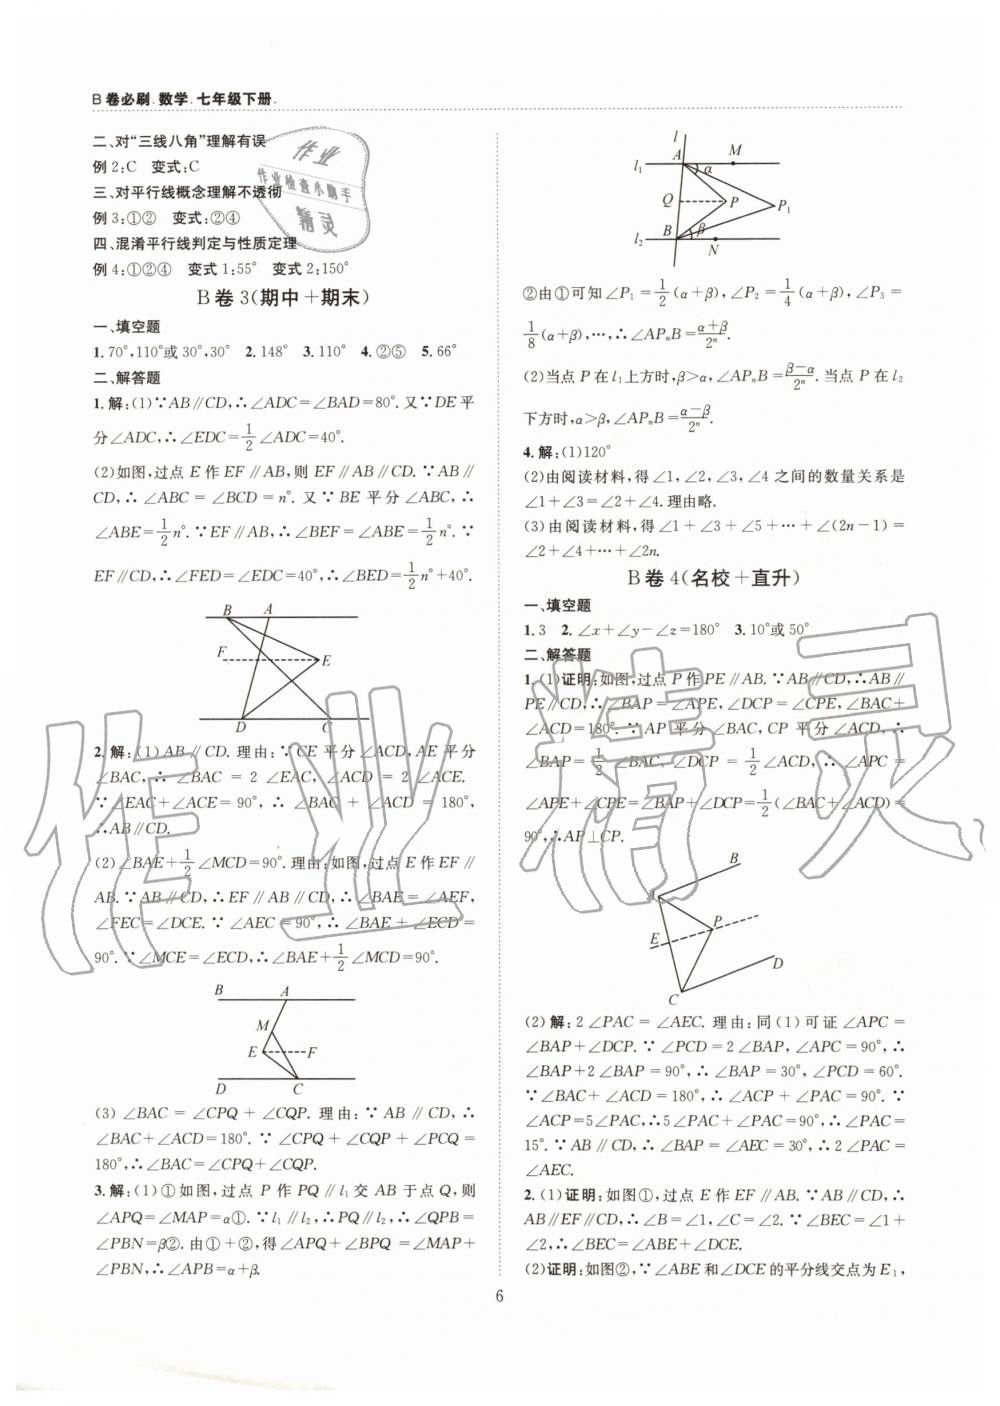 B卷必刷.数学.七年级下册.
二、对“三线八角”理解有误
例2:C 变式:C
三、对平行线概念理解不透彻
例3:①② 变式:②④
四、混淆平行线判定与性质定理
例4:①②④ 变式1:55° 变式2:150°
B卷3(期中+期末)
一、填空题
1. 70°,110°或30°,30° 2. 148° 3. 110° 4. ②⑤ 5. 66°
二、解答题
1. 解:(1)∵AB∥CD,∴∠ADC=∠BAD=80°. 又∵DE平
分∠ADC,∴∠EDC=1/2∠ADC=40°.
(2)如图,过点E作EF∥AB,则EF∥AB∥CD. ∵AB∥
CD,∴∠ABC=∠BCD=n°. 又∵BE平分∠ABC,∴
∠ABE=1/2n°. ∵EF∥AB,∴∠BEF=∠ABE=1/2n°. ∵
EF∥CD,∴∠FED=∠EDC=40°,∴∠BED=1/2n°+40°.
B A
F E
D C
2. 解:(1)AB∥CD. 理由:∵CE平分∠ACD,AE平分
∠BAC,∴∠BAC=2∠EAC,∠ACD=2∠ACE.
∵∠EAC+∠ACE=90°,∴∠BAC+∠ACD=180°,
∴AB∥CD.
(2)∠BAE+1/2∠MCD=90°. 理由:如图,过点E作EF∥
AB. ∵AB∥CD,∴EF∥AB∥CD,∴∠BAE=∠AEF,
∠FEC=∠DCE. ∵∠AEC=90°,∴∠BAE+∠ECD=
90°. ∵∠MCE=∠ECD,∴∠BAE+1/2∠MCD=90°.
B A
M
E F
D C
(3)∠BAC=∠CPQ+∠CQP. 理由:∵AB∥CD,∴
∠BAC+∠ACD=180°. ∵∠CPQ+∠CQP+∠PCQ=
180°,∴∠BAC=∠CPQ+∠CQP.
3. 解:(1)①如图,过点P作PQ∥l₁交AB于点Q,则
∠APQ=∠MAP=α①. ∵l₁∥l₂,∴PQ∥l₂,∴∠QPB=
∠PBN=β②. 由①+②,得∠APQ+∠BPQ=∠MAP+
∠PBN,∴∠APB=α+β.
l
l₁ A M
α
Q P P₁
l₂ B β
N
②由①可知∠P₁=1/2(α+β),∠P₂=1/4(α+β),∠P₃=
1/8(α+β),…,∴∠APₙB=(α+β)/2ⁿ.
(2)当点P在l₁上方时,β>α,∠APₙB=(β−α)/2ⁿ. 当点P在l₂
下方时,α>β,∠APₙB=(α−β)/2ⁿ.
4. 解:(1)120°
(2)由阅读材料,得∠1,∠2,∠3,∠4之间的数量关系是
∠1+∠3=∠2+∠4. 理由略.
(3)由阅读材料,得∠1+∠3+∠5+…+∠(2n−1)=
∠2+∠4+…+∠2n.
B卷4(名校+直升)
一、填空题
1. 3 2. ∠x+∠y−∠z=180° 3. 10°或50°
二、解答题
1. (1)证明:如图,过点P作PE∥AB. ∵AB∥CD,∴AB∥
PE∥CD,∴∠BAP=∠APE,∠DCP=∠CPE,∠BAC+
∠ACD=180°. ∵AP平分∠BAC,CP平分∠ACD,∴
∠BAP=1/2∠BAC,∠DCP=1/2∠ACD,∴∠APC=
∠APE+∠CPE=∠BAP+∠DCP=1/2(∠BAC+∠ACD)=
90°,∴AP⊥CP.
B
P
E
D
C
(2)解:2∠PAC=∠AEC. 理由:同(1)可证∠APC=
∠BAP+∠DCP. ∵∠PCD=2∠BAP,∠APC=90°,∴
∠BAP+2∠BAP=90°,∴∠BAP=30°,∠PCD=60°.
∵∠BAC+∠ACD=180°,∴∠ACP+∠PAC=90°. ∵
∠ACP=5∠PAC,∴5∠PAC+∠PAC=90°,∴∠PAC=
15°. ∵AB∥CD,∴∠BAP=∠AEC=30°,∴2∠PAC=
∠AEC.
2. (1)证明:如图①,过点E作EF∥AB. ∵AB∥CD,∴
AB∥EF∥CD,∴∠B=∠1,∠C=∠2. ∵∠BEC=∠1+
∠2,∴∠BEC=∠ABE+∠DCE.
(2)证明:如图②,∵∠ABE和∠DCE的平分线交点为E₁,
6
作业
作业检查小助手
精灵
作业精灵